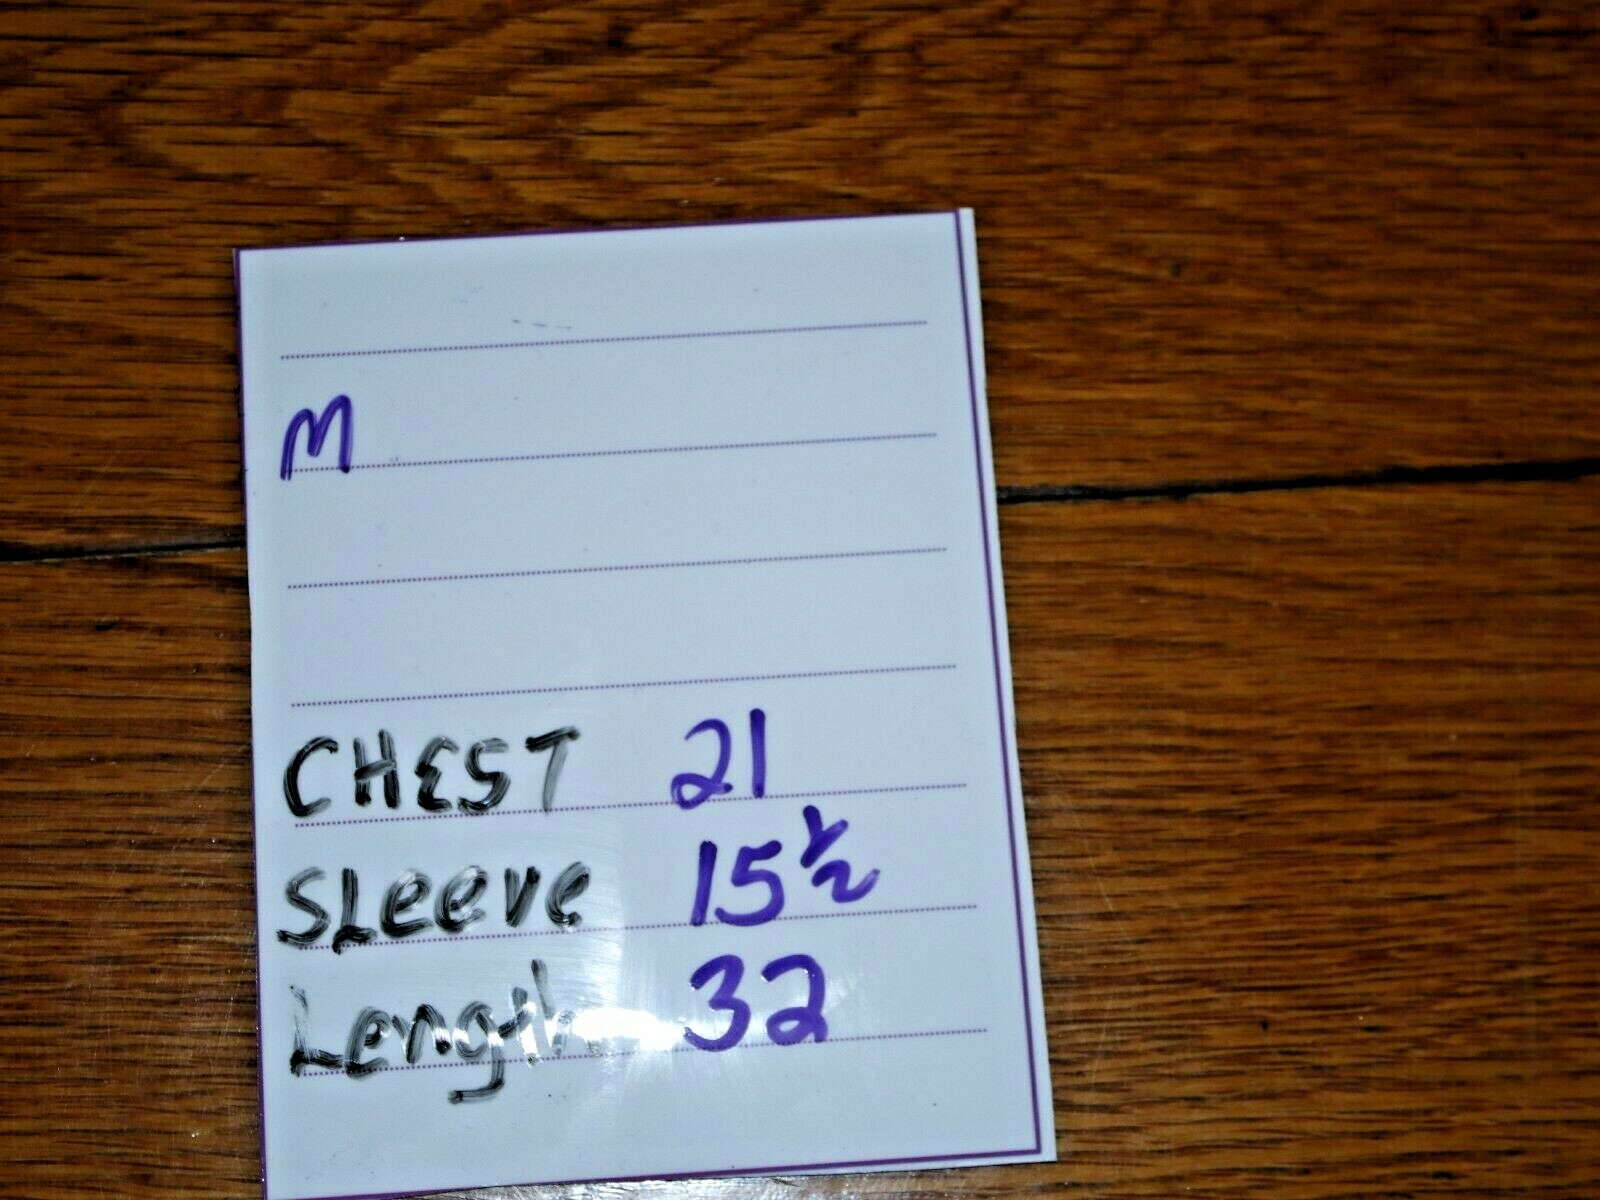 M
CHEST 21
SLeeve 15 1/2
Length 32